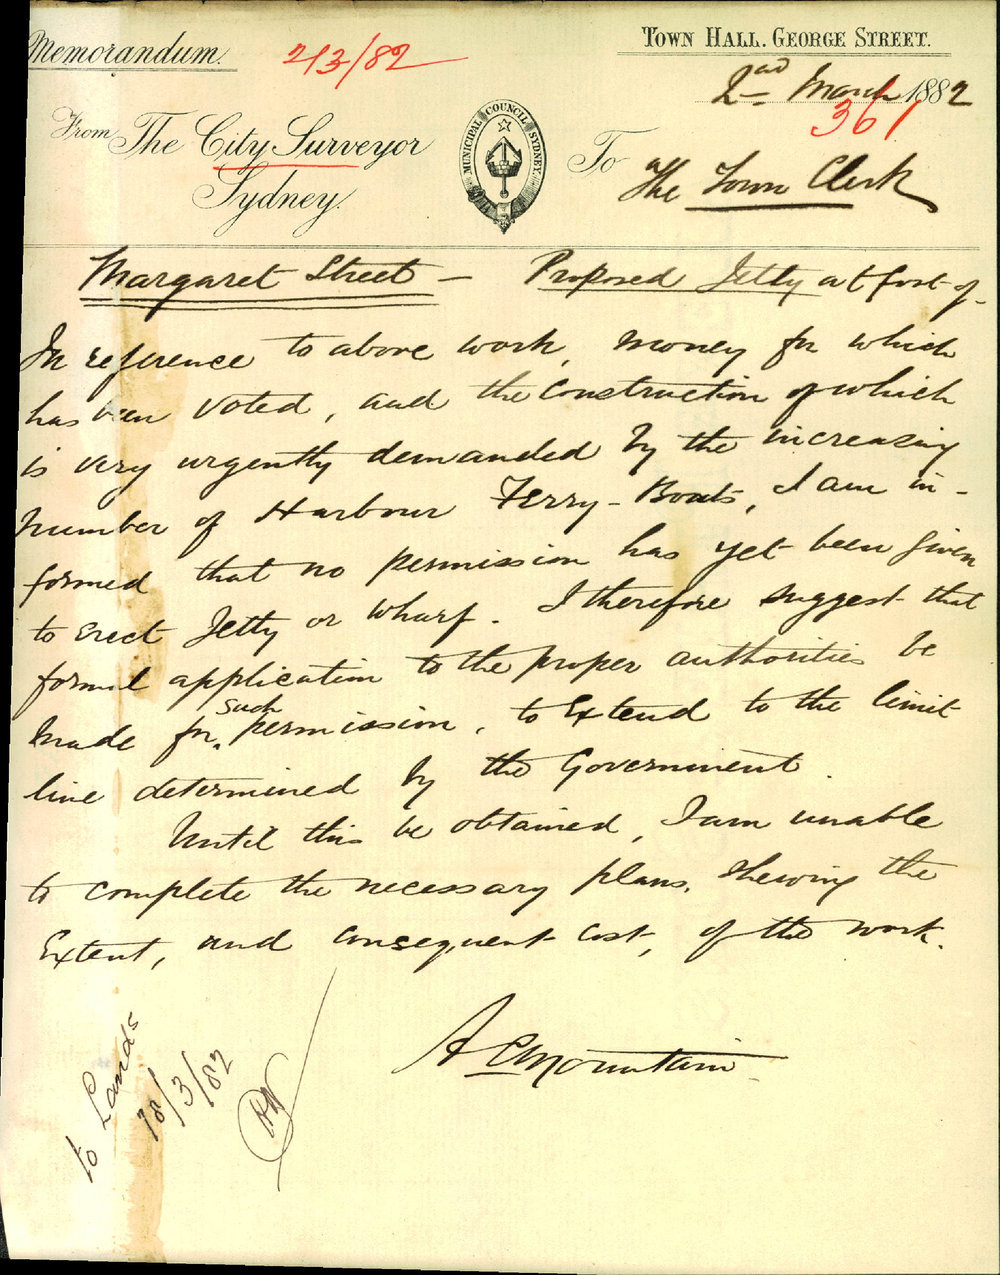 Memorandum.
2/3/82
TOWN HALL. GEORGE STREET.
2nd March 1882
361
From The City Surveyor
Sydney.
MUNICIPAL COUNCIL SYDNEY.
To The Town Clerk
Margaret Street — Proposed Jetty at foot of -
In reference to above work, money for which
has been voted, and the construction of which
is very urgently demanded by the increasing
number of Harbour Ferry-Boats, I am in-
formed that no permission has yet been given
to erect Jetty or wharf. I therefore suggest that
formal application to the proper authorities be
made for such permission, to extend to the limit
line determined by the Government.
Until this be obtained, I am unable
to complete the necessary plans, shewing the
Extent, and consequent cost, of the work.
A C Mountain
to Lands
18/3/82